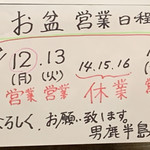 お盆 営業日程
12.13 14.15.16
(月)(火) 休業
営業 営業
よろしく、お願い致します。
男鹿半島